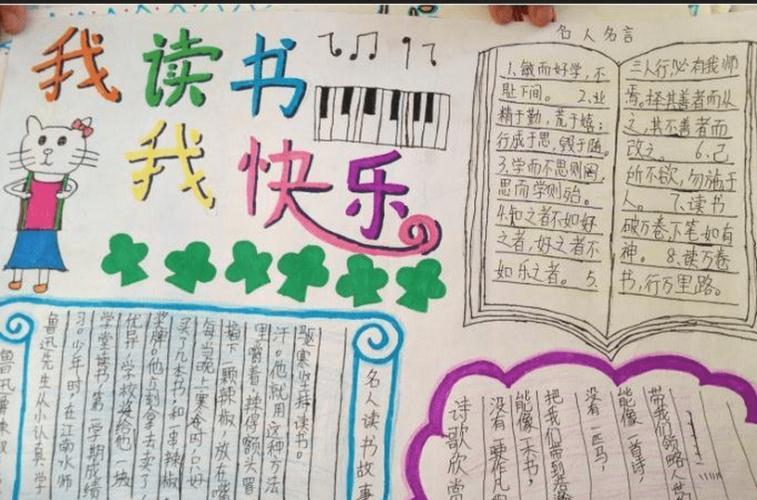 我读书
我快乐
名人名言
1.敏而好学,不
耻下问。 2.业
精于勤,荒于嬉;
行成于思,毁于随。
3.学而不思则罔,
思而学则殆。
4.知之者不如好
之者,好之者不
如乐之者。 5.
三人行,必有我师
焉。择其善者而从
之,其不善者而
改之。 6.己
所不欲,勿施于
人。 7.读书
破万卷,下笔如有
神。 8.读万卷
书,行万里路。
鲁迅嚼辣
鲁迅先生从小认真学
习。少年时,在江南水师
学堂读书,第一学期成绩
优异,学校奖给他一枚
奖牌。他立刻拿去卖了,
买了几本书,和一串辣椒
每当晚上寒冷时,只好
摘下一颗辣椒,放在嘴
里嚼着,辣得额头冒
汗。他就用这种方法
驱寒坚持读书。
名人读书故事
诗歌欣赏
没有一艘非凡
能像一本书,
把我们带到浩
没有一匹马,
能像一首诗,
带我们领略